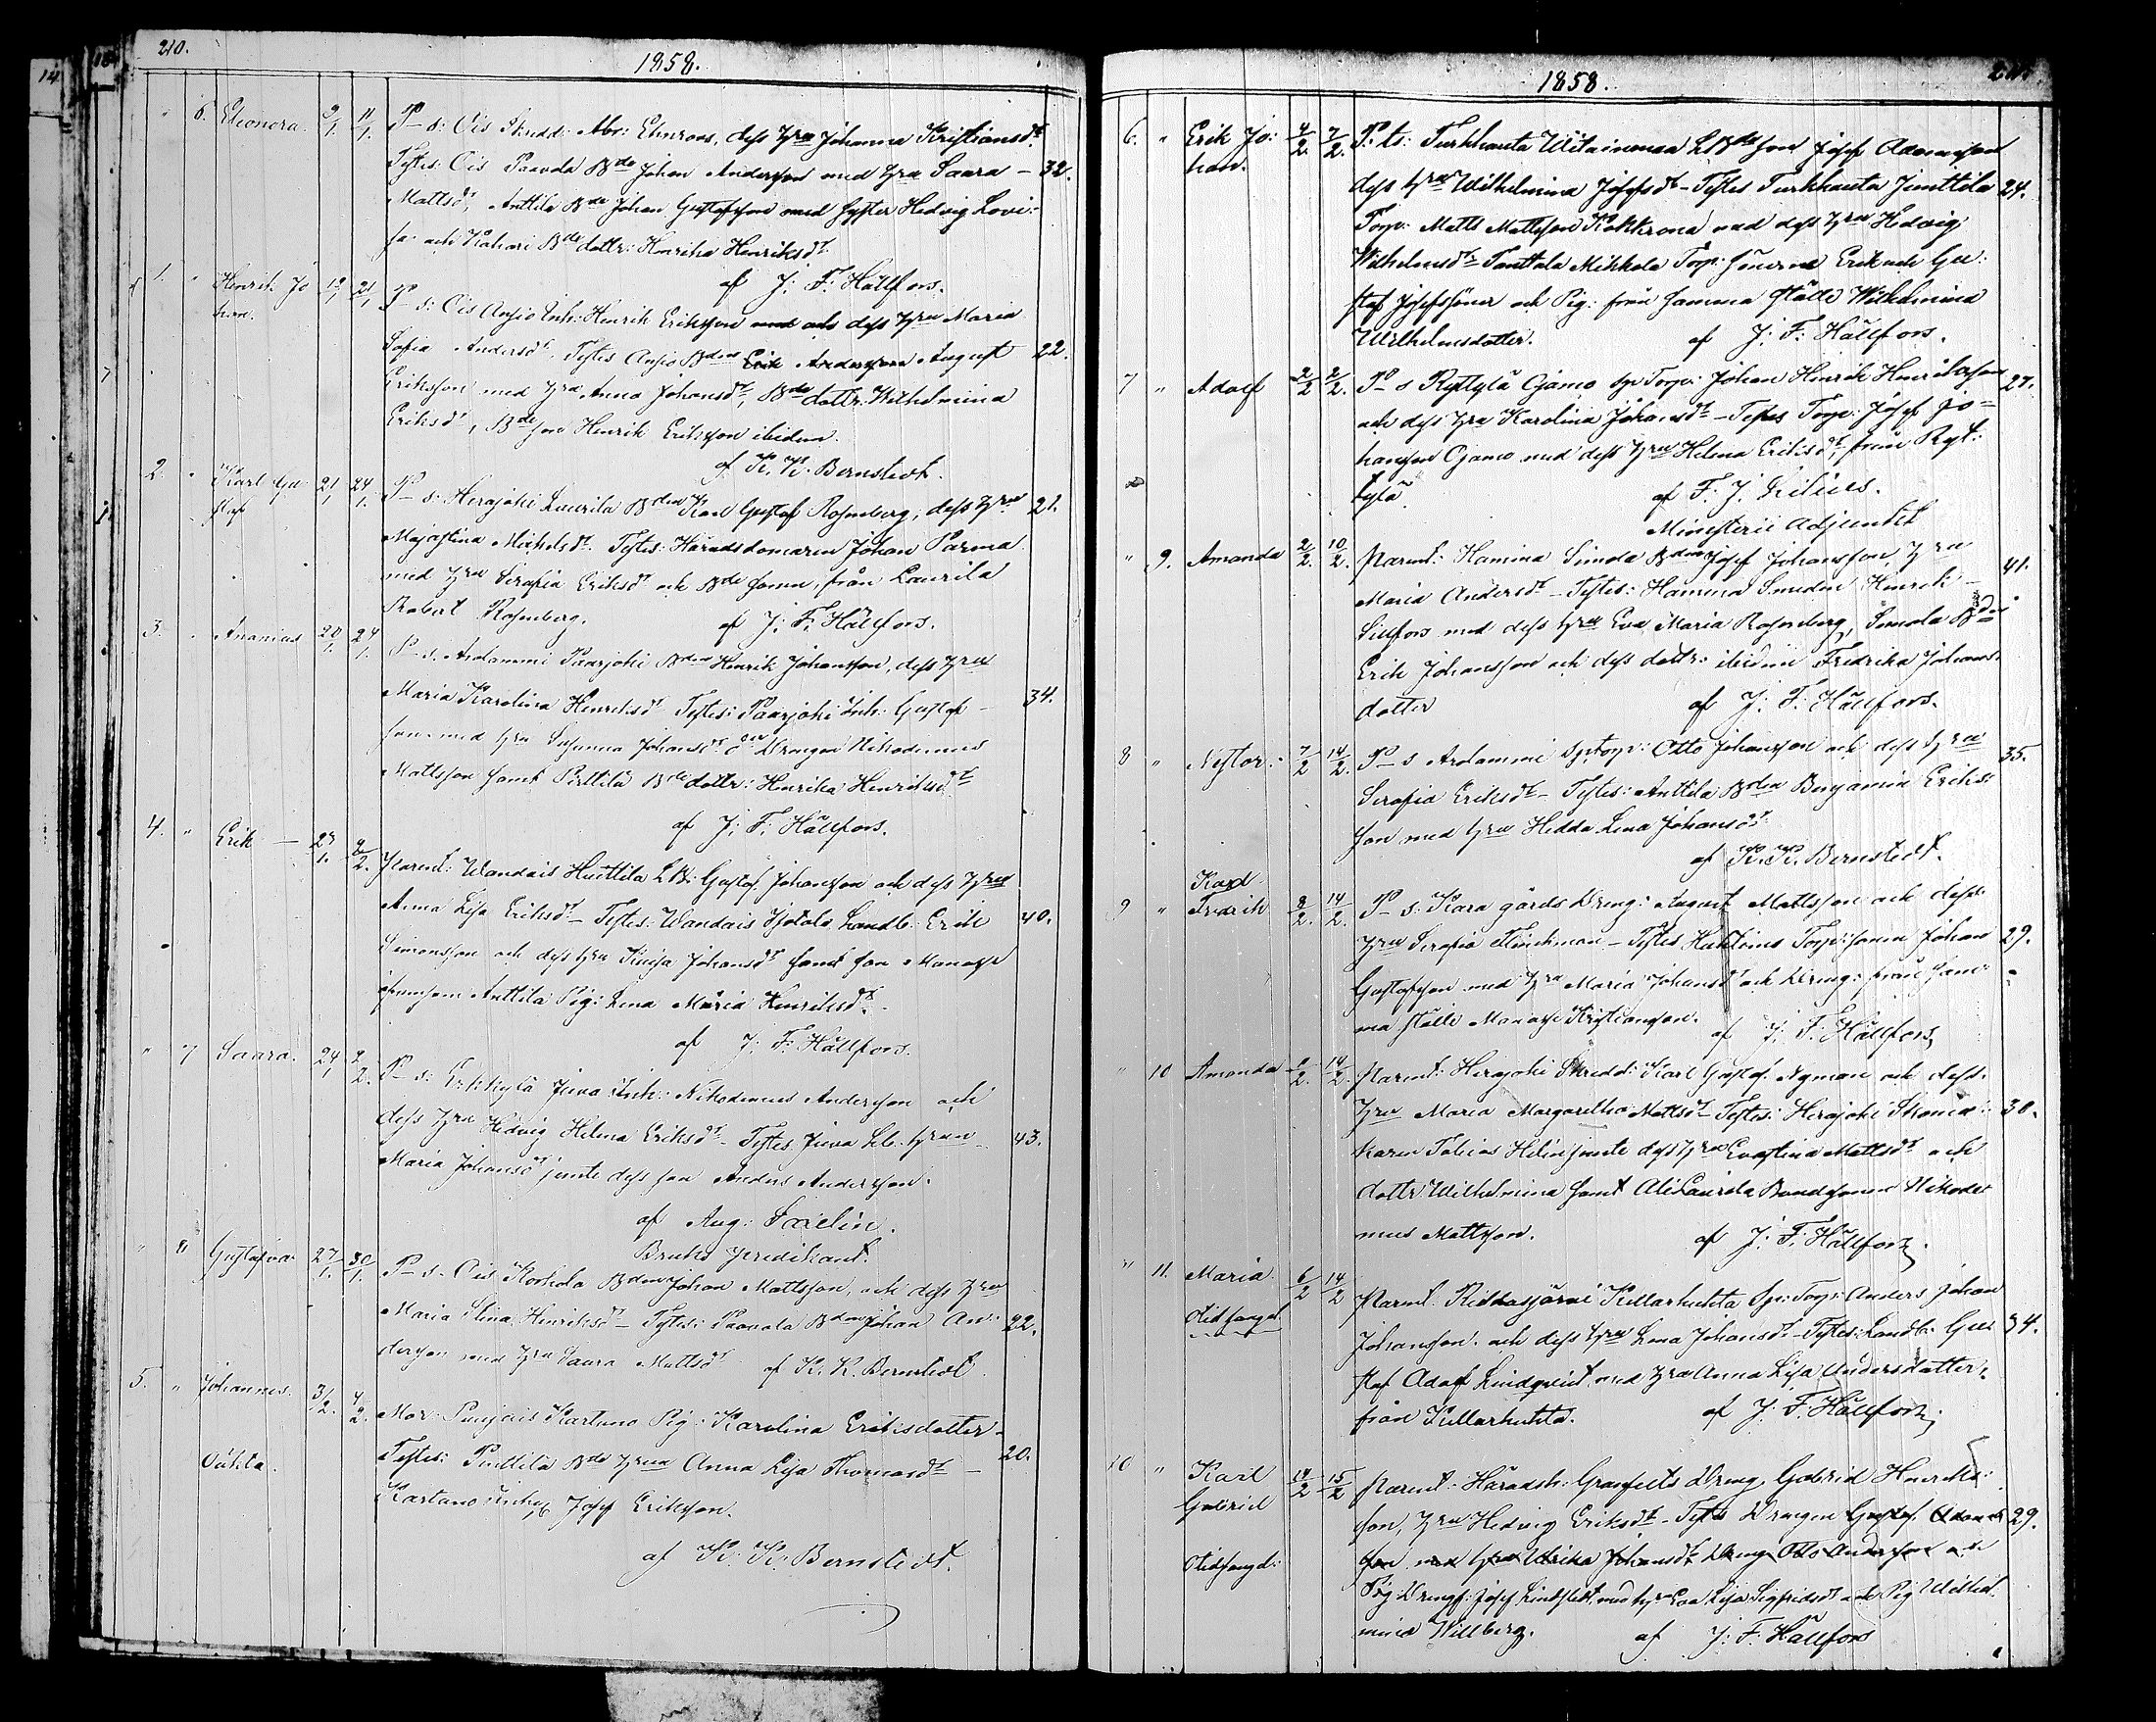 210.
1858.
" 6. Eleonora. 9/1. 11/1. P-s: Ois Skrädd: Abr: Elmroos, dess hru Johanna Kristiansdr.
Testes: Ois Paavola Bde Johan Andersson med hru Saara - 32.
Mattsdr, Anttila Bde Johan Gustafsson med syster Hedvig Lovi:
sa och Kahari Bde dottr: Henrika Henriksdr
af J: F: Hällfors.
1. " Henrik Jo 19/1 21/1 P-s: Ois Anjio Inh: Henrik Eriksson med och dess hru Maria
han.
Sofia Andersdr, Testes Anjio Bdens Erik Andersson August 22.
Eriksson med hru Anna Johansdr, Bde dottr: Wilhelmina
Eriksdr, Bde son Henrik Eriksson ibidem.
af K. K. Bernstedt.
2. " Karl Gu 21/1 24/1. P-s: Herajoki Laurila Bden Karl Gustaf Rosenberg, dess hru 21.
staf
Majastina Michelsdr. Testes: Häradsdomaren Johan Parma
med hru Serafia Eriksdr och Bde sonen, från Laurila
Robert Rosenberg. af J: F: Hällfors.
3. " Ananias 20/1. 24/1. P-s. Arolammi Paarjoki Bden Henrik Johansson, dess hru
Maria Karolina Henriksdr Testes: Paarjoki Inh: Gustaf - 34.
son med hru Susanna Johansdr Drengen Nikodemus
Mattsson samt Pirttilä Bde dottr: Henrika Henriksdr
af J: F: Hällfors.
4. " Erik - 27/1. 2/2. Parent: Wandais Huttila LB: Gustaf Johansson och dess hru
Anna Lisa Eriksdr - Testes: Wandais Hjotala Landb: Erik 40.
Simonsson och dess hru Kaisa Johansdr samt son Manasse
Anttila Pig: Lena Maria Henriksdr.
af J: F: Hällfors.
" 7 Saara. 24/1 2/2. P-s: Erkkylä Juva Inh: Nikodemus Andersson och
dess hru Hedvig Helena Eriksdr - Testes Juva Lb. hrun 43.
Maria Johansdr jemte dess son Anders Andersson.
af Aug: Favelin.
Bruks predikant.
" 8 Gustafva 27/1. 30/1. P-s. Ois Korkola Bden Johan Mattsson, och dess hru
Maria Stina Henriksdr - Testes: Paavala Bden Johan An: 22.
dersson med hru Saara Mattsdr af K. K. Bernstedt.
5. " Johannes. 3/2. 4/2. Mor: Punjais Kartano Pig: Karolina Eriksdotter - 20.
Oäkta. Testes: Penttila Bde hrun Anna Lisa Thomasdr -
Kartano Inhys Josef Eriksson.
af K: K: Bernstedt.
1858.
6. " Erik Jo: 4/2. 7/2. P. ts: Turkhauta Witainemaa LBde son Josef Adamsson
han.
dess hru Wilhelmina Josefsdr - Testes Turkhauta Junttila 24.
Torp: Matts Mattsson Kokkrona med dess hru Hedvig
Wilhelmsdr Tanttala Mikkola Torp: sönerne Erik och Gu:
staf Josefssöner och Pig: från samma ställe Wilhelmina
Wilhelmsdotter. af J: F: Hällfors.
7 " Adolf 2/2 2/2. P- s Ryttylä Ojamo sp: Torp: Johan Hinrik Henriksson 27.
och dess hru Karolina Johansdr - Testes Torp: Josef Jo=
hansson Ojamo med dess hru Helena Eriksdr, från Ryt:
tylä. af F: J. Grelius.
Ministerii Adjunkt
" 9. Amanda 2/2. 10/2. Parent: Hamina Simola Bden Josef Johansson, hru 41.
Maria Andersdr - Testes: Hamina Smeden Henrik -
Sillfors med dess hru Eva Maria Rosenberg, Simola Bden
Erik Johansson och dess dottr: ibidem Fredrika Johans:
dotter af J: F: Hällfors.
8 " Nestor. 7/2 14/2. P- s Arolammi Sp: torp: Otto Johansson och dess hru 35.
Serafia Eriksdr - Testes: Anttila Bden Benjamin Eriks:
son med hru Hedda Lena Johansdr
af K. K. Bernstedt.
9 " Karl
Fredrik 8/2. 14/2. P- s: Kara gårds Dreng: August Mattsson och dess
hru Serafia Flinkman - Testes Torp: sonen Johan 29.
Gustafsson med hru Maria Johansdr och Dreng: från sam:
ma ställe Manasse Kristiansson. af J: F: Hällfors
" 10 Amanda 14/2. Parent: Herajoki Skrädd: Karl Gustaf Nyman och dess
hru Maria Margaretha Mattsdr Testes: Herajoki Skoma: 30.
karen Tobias Helin jemte dess hru Evastina Mattsdr och
dottr Wilhelmina samt Ali Laurila Bondsonen Nikode
mus Mattsson. af J: F: Hällfors.
" 11. Maria 6/2 14/2 Parent. Ridasjärvi Kullarhuhta Sp: Torp: Anders Johan
Otidfangd
Johansson och dess hru Lena Johansdr - Testes: Landb: Gu: 34.
staf Adolf Lindqvist med hru Anna Lisa Andersdotter.
från Kullarhuhta. af J: F: Hällfors.
10 " Karl 14/2 15/2 Parent: Häradsh: Granfelts Dreng Gabriel Henriks:
Gabriel
son, hru Hedvig Eriksdr - Testes Drengen Gustaf Adams 29.
Otidfangd:
son med hru Ulrika Johansdr Dreng Otto Andersson och
Pig: Drengf: Josef Lindstedt, med hru Eva Lisa Sigfridsdr och Pig Wilhel
mina Willberg. af J: F: Hällfors